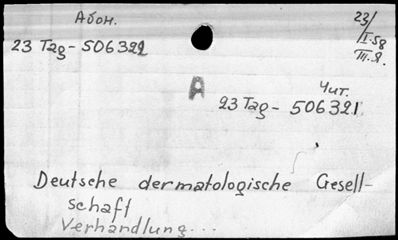 Абон.
23/I-58
III.Я.
23 Tag - 506322
А
Чит.
23 Tag - 506321
Deutsche dermatologische Gesell-
schaft
Verhandlung...